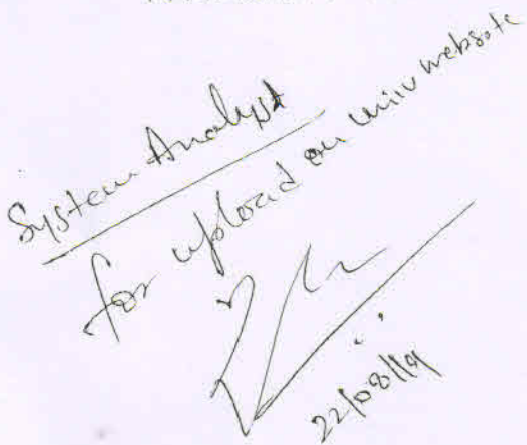 System Analyst
for upload on univ website
22/08/19